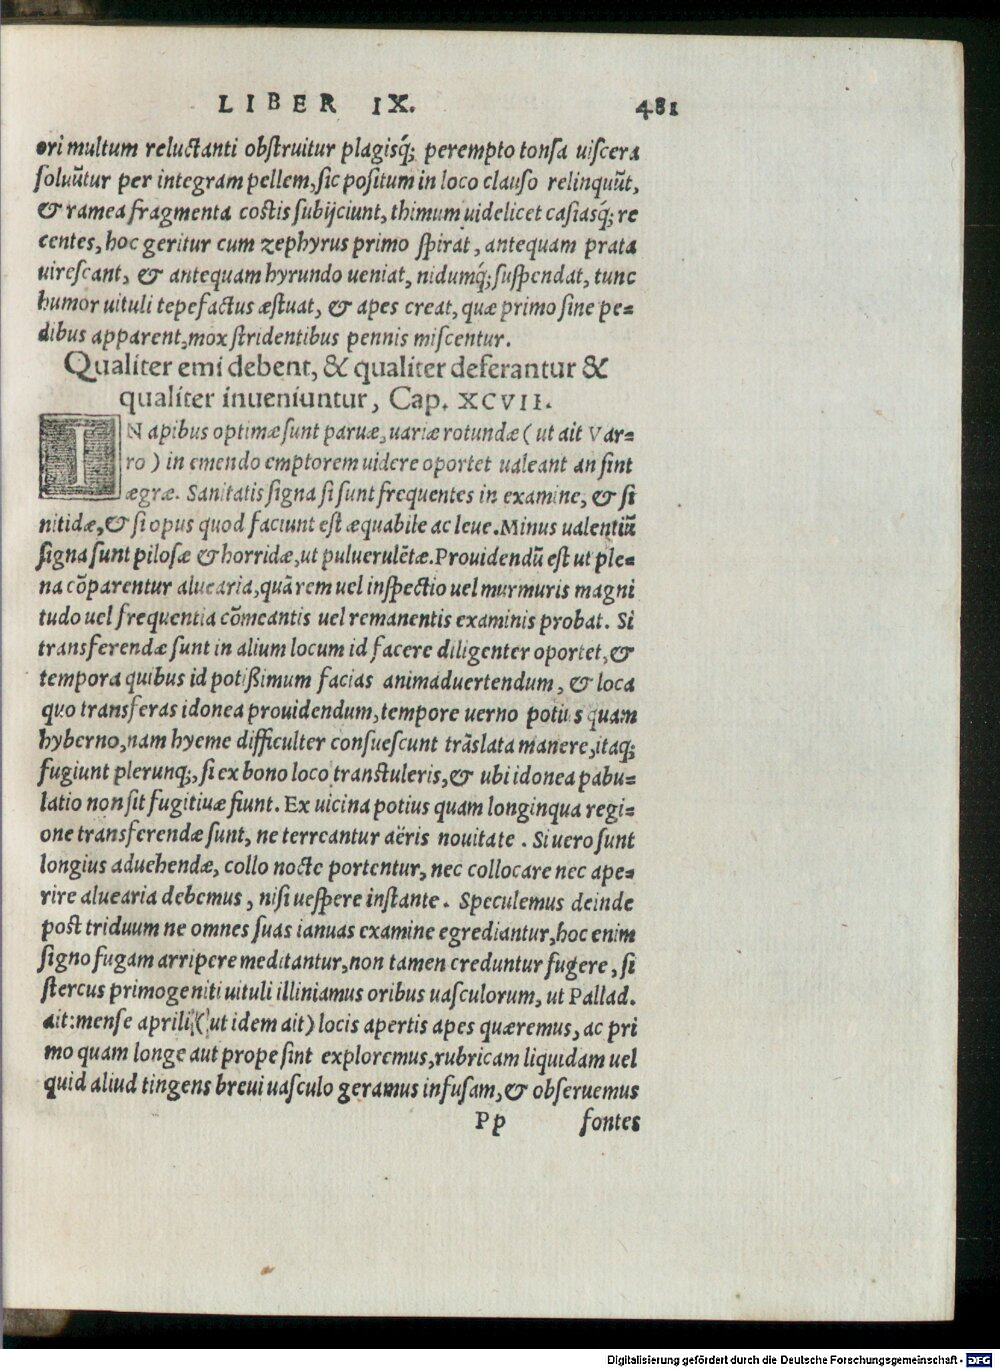 LIBER IX. 481
ori multum reluctanti obstruitur plagisq́; perempto tonsa uiscera
soluūtur per integram pellem, sic positum in loco clauso relinquūt,
& ramea fragmenta costis subijciunt, thimum uidelicet casiasq́; re
centes, hoc geritur cum zephyrus primo spirat, antequam prata
uirescant, & antequam hyrundo ueniat, nidumq́; suspendat, tunc
humor uituli tepefactus æstuat, & apes creat, quæ primo sine pe=
dibus apparent, mox stridentibus pennis miscentur.
Qualiter emi debent, & qualiter deferantur &
qualiter inueniuntur, Cap. XCVII.
IN apibus optimæ sunt paruæ, uariæ rotundæ ( ut ait Var=
ro ) in emendo emptorem uidere oportet ualeant an sint
ægræ. Sanitatis signa si sunt frequentes in examine, & si
nitidæ, & si opus quod faciunt est æquabile ac leue. Minus ualentiū
signa sunt pilosæ & horridæ, ut puluerulētæ. Prouidendū est ut ple=
na cōparentur aluearia, quā rem uel inspectio uel murmuris magni
tudo uel frequentia cōmeantis uel remanentis examinis probat. Si
transferendæ sunt in alium locum id facere diligenter oportet, &
tempora quibus id potißimum facias animaduertendum, & loca
quo transferas idonea prouidendum, tempore uerno potius quam
hyberno, nam hyeme difficulter consuescunt trāslata manere, itaq;
fugiunt plerunq;, si ex bono loco transtuleris, & ubi idonea pabu=
latio non sit fugitiuæ fiunt. Ex uicina potius quam longinqua regi=
one transferendæ sunt, ne terreantur aëris nouitate . Si uero sunt
longius aduehendæ, collo nocte portentur, nec collocare nec ape=
rire aluearia debemus, nisi uespere instante. Speculemus deinde
post triduum ne omnes suas ianuas examine egrediantur, hoc enim
signo fugam arripere meditantur, non tamen creduntur fugere, si
stercus primogeniti uituli illiniamus oribus uasculorum, ut Pallad.
ait: mense aprili, ( ut idem ait) locis apertis apes quæremus, ac pri
mo quam longe aut prope sint exploremus, rubricam liquidam uel
quid aliud tingens breui uasculo geramus infusam, & obseruemus
Pp fontes
Digitalisierung gefördert durch die Deutsche Forschungsgemeinschaft - DFG